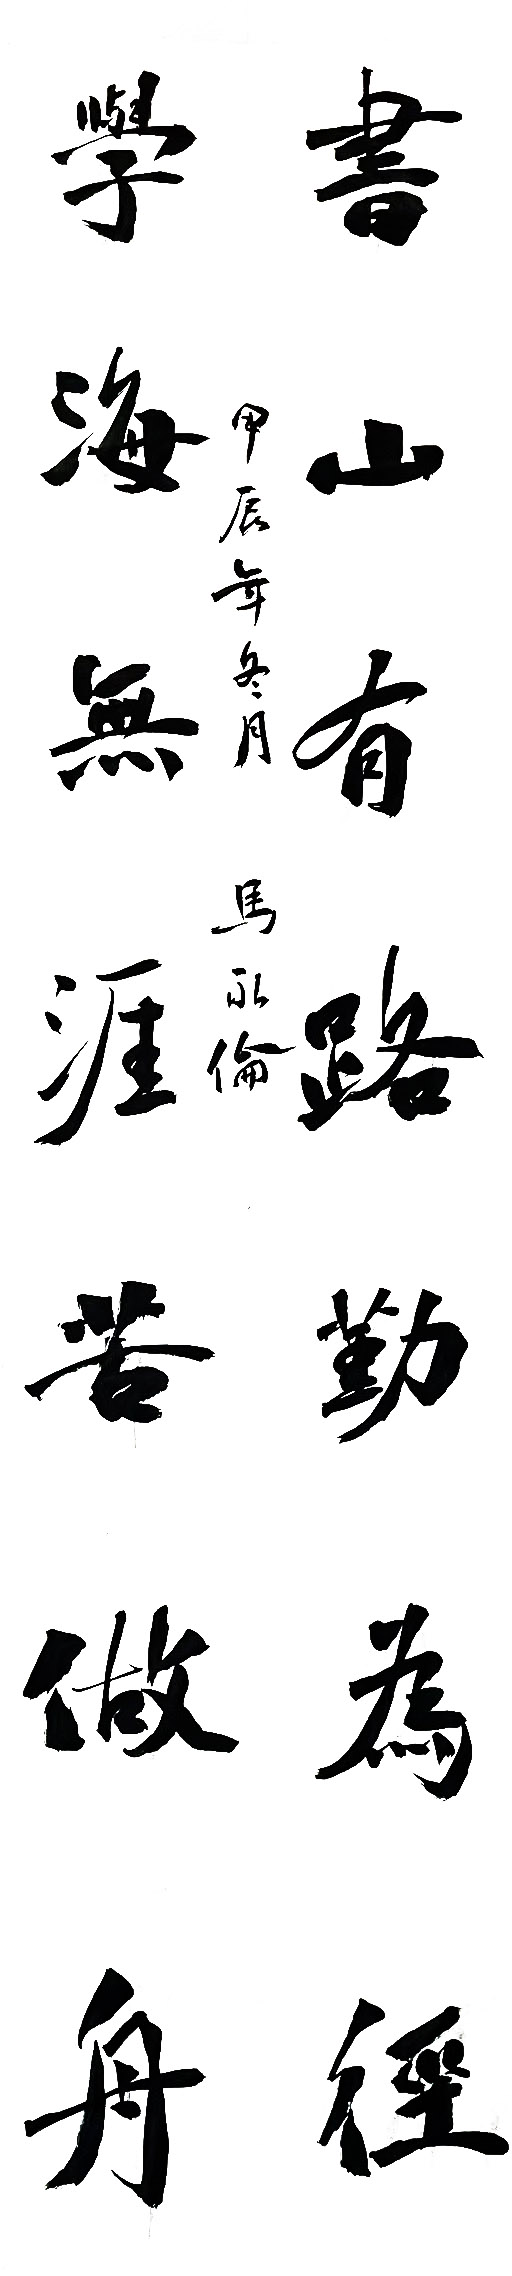 書山有路勤為徑
學海無涯苦做舟
甲辰年冬月
馬永倫